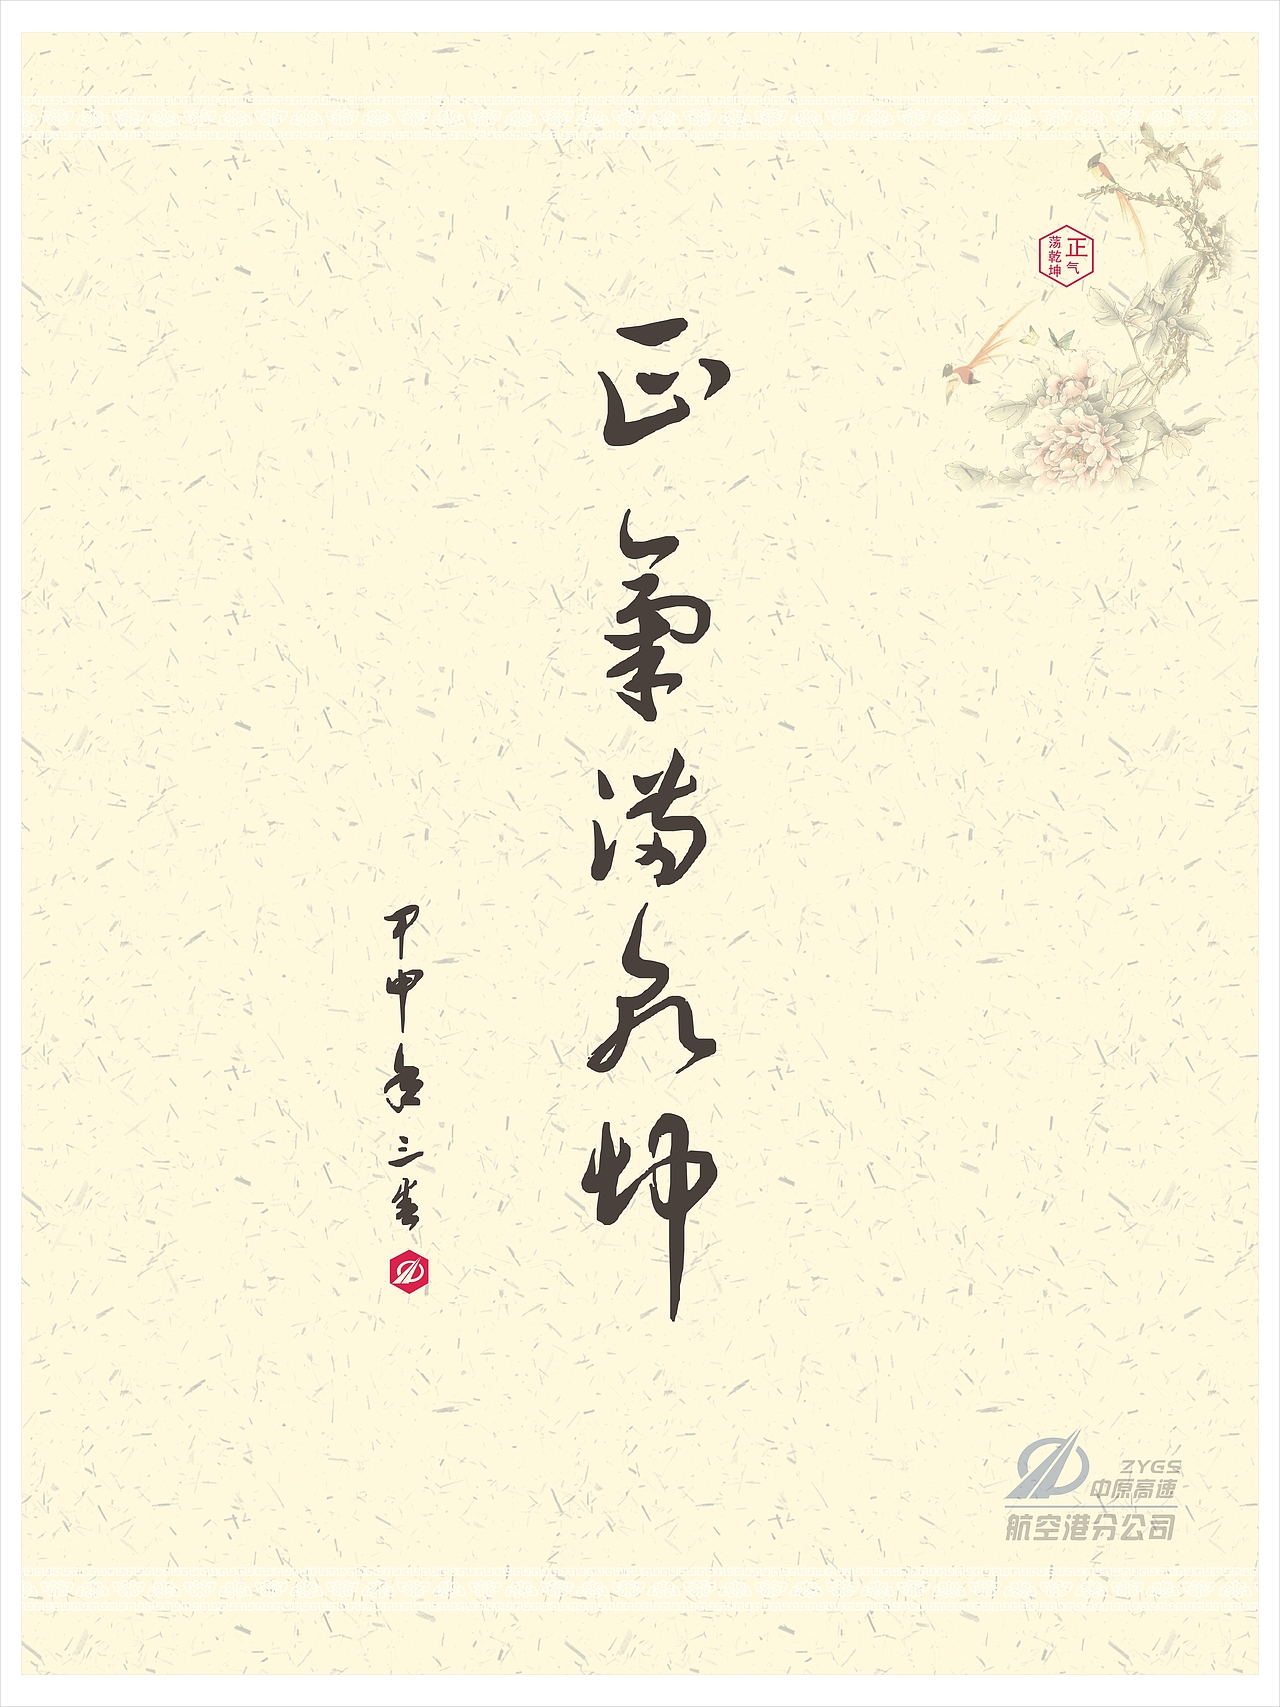 正
气
荡乾坤
正氣满乾坤
甲申年
ZYGS
中原高速
航空港分公司